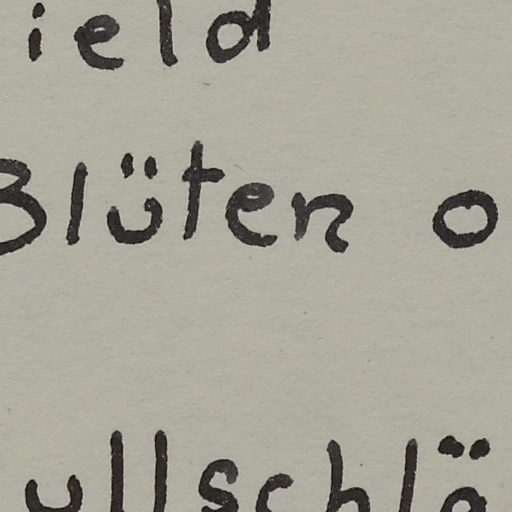 ield
Blüten o
ullschlä